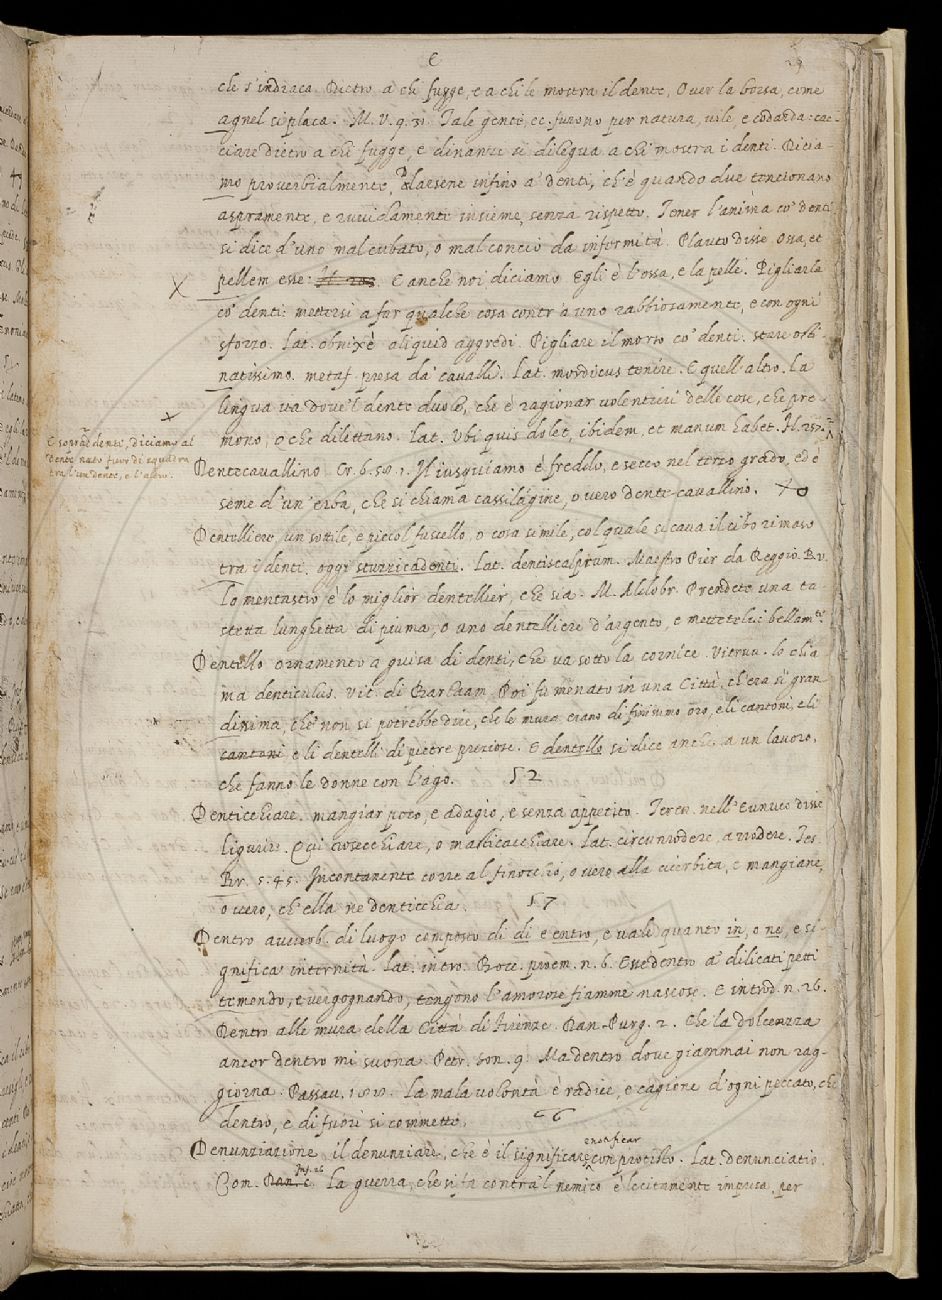 e
29
che s'indraca. Dietro a chi fugge, e a chi le mostra il dente, Over la borsa, come
agnel si placa. M. V. 9. 31. Tale gente, ec. furono per natura, vile, e codarda: cac-
ciare dietro a chi fugge, e dinanzi si dilegua a chi mostra i denti. Dicia-
mo proverbialmente, Darsene infino a' denti, ch'è quando due tencionano
aspramente, e ruvidamente insieme, senza rispetto. Tener l'anima co' denti
si dice d'uno mal cubato, o mal concio da infermità. Plauto disse Ossa, et
pellem esse: E anche noi diciamo Egli è l'ossa, e la pelle. Pigliarla
co' denti: mettersi a far qualche cosa contr'a uno rabbiosamente, e con ogni
sforzo. Lat. obnixè aliquid aggredi. Pigliare il morso co' denti. stare osti-
natissimo. metaf. presa da' cavalli. Lat. mordicus tenere. E quell'altro. La
lingua va dove 'l dente duole, che è ragionar volentieri delle cose, che pre-
mono, o che dilettano. Lat. Ubi quis dolet, ibidem, et manum habet. Fl. 257.
E sopra denti, diciamo al
dente nato fuor di squadra
tra l'un dente, e l'altro
Dentecavallino Cr. 6. 58. 1. Il iusquiamo è freddo, e secco nel terzo grado, ed è
seme d'un'erba, che si chiama cassilágine, o vero dente cavallino.
Dentelliere, un sottile, e piccol fuscello, o cosa simile, col quale si cava il cibo rimaso
tra i denti. oggi sturzicadenti. Lat. dentiscalpium. Maestro Pier da Reggio. R. v.
Lo mentastro è lo miglior dentellier, che sia. M. Aldobr. Prendete una ta-
stetta lunghetta di piuma, o uno dentelliere d'argento, e mettetelici bellam.te
Dentello ornamento a guisa di denti, che va sotto la cornice. Vitruv. lo chia-
ma denticulus. Vit. di Barlaam. Poi fu menato in una Città, ch'era sì gran
dissima, che non si potrebbe dire, che le mura erano di finissimo oro, e li cantoni, e li
cantoni e li dentelli di pietre preziose. E dentello si dice anche a un lavoro,
che fanno le donne con l'ago. 52
Denticchiare. mangiar poco, e adagio, e senza appetito. Teren. nell'Eunuco disse
ligurire. Qui rosecchiare, o masticacchiare. Lat. circunrodere, arrodere. Tes.
Br. 5. 45. Incontanente corre al finocchio, o vero alla cicerbita, e mangiane,
o vero, ch'ella ne denticchia. 57
Dentro avverb. di luogo composto di di e entro, e vale quanto in, o ne, e si-
gnifica internità. Lat. intro. Bocc. proem. n. 6. Esse dentro a' dilicati petti
temendo, e vergognando, tengono l'amorose fiamme nascose. E introd. n. 26.
Dentro alle mura della Città di Firenze. Dan. Purg. 2. Che la dolcezza
ancor dentro mi suona. Petr. son. 9. Ma dentro dove giammai non rag-
giorna. Passav. La mala volontà è radice, e cagione d'ogni peccato, che
dentro, e di fuori si commette.
Denunziazione, il denunziare, che è il significare con protesto. Lat. denunciatio.
enotificar
Com. Inf. 26 La guerra, che si fa contra 'l nemico è lecitamente impresa, per